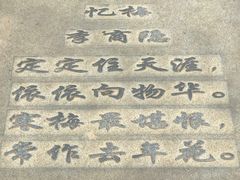 忆梅
李商隐
定定住天涯，
依依向物华。
寒梅最堪恨，
常作去年花。